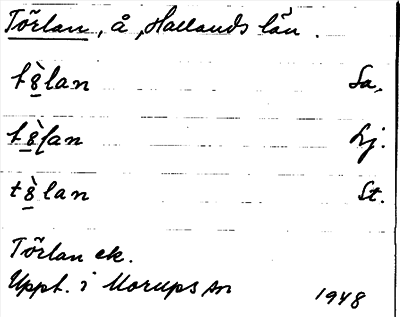 Törlan, å, Hallands län.
t8̀lan Sa.
t8̀lan Lj.
t8̀lan St.
Törlan ek.
Uppt. i Morups sn
1948